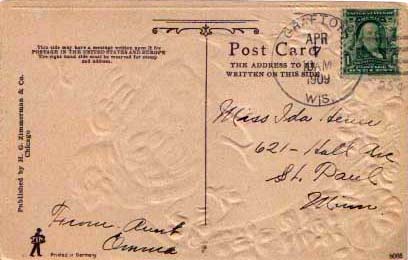 This side may have a message written upon it for
POSTAGE IN THE UNITED STATES AND EUROPE
The right hand side must be reserved for stamp
and address.
Post Card
THE ADDRESS TO BE
WRITTEN ON THIS SIDE
GRAFTON
APR
7
AM
1909
WIS.
1
Miss Ida
621- Holt Ave
St. Paul
Minn.
From Aunt
Emma
Published by H. G. Zimmerman & Co.
Chicago
Printed in Germany